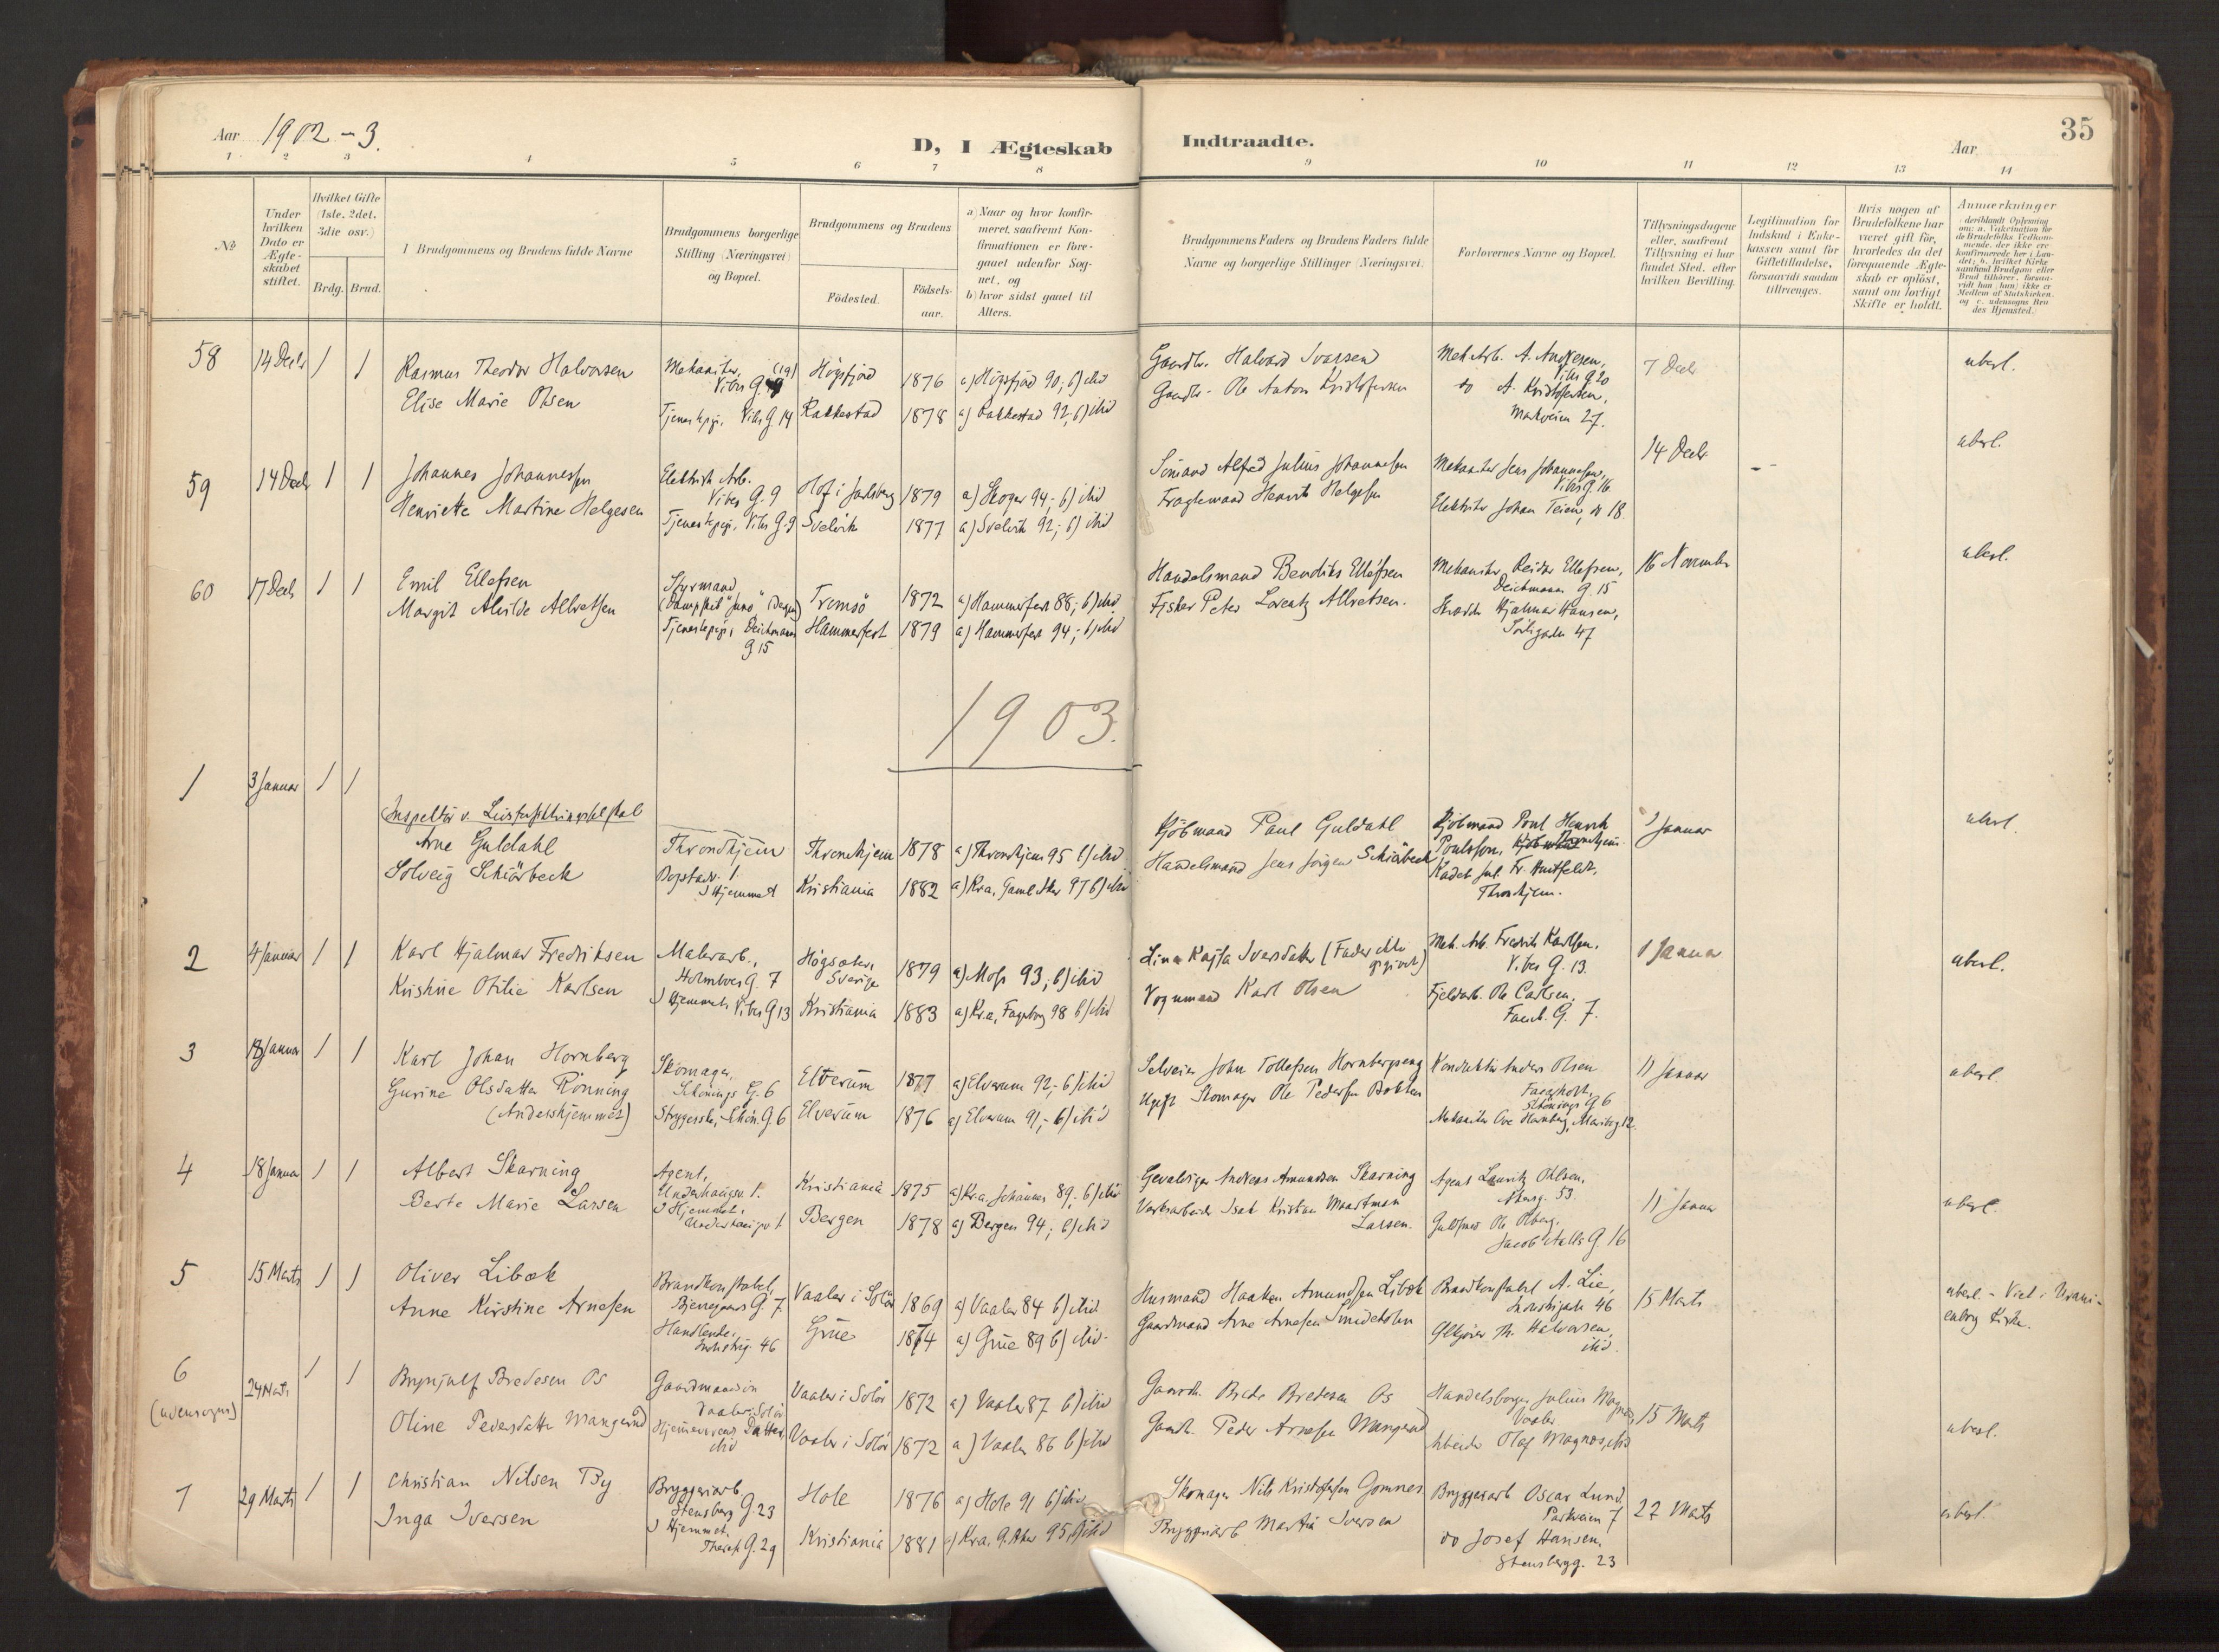 Aar 1902-3.
D, I Ægteskab
Indtraadte.
Aar
35
1 2 3 4 5 6 7 8 9 10 11 12 13 14
No
Under hvilken Dato er Ægteskabet stiftet.
Hvilket Gifte (1ste, 2det, 3die osv.)
Brdg. Brud.
Brudgommens og Brudens fulde Navne
Brudgommens borgerlige Stilling (Næringsvei) og Bopæl.
Brudgommens og Brudens
Födested.
Födsels-aar.
a) Naar og hvor konfirmeret, saafremt Konfirmationen er foregaaet udenfor Sognet, og
b) hvor sidst gaaet til Alters.
Brudgommens Faders og Brudens Faders fulde Navne og borgerlige Stillinger (Næringsvei).
Forlovernes Navne og Bopæl.
Tillysningsdagene eller, saafremt Tillysning ei har fundet Sted, efter hvilken Bevilling.
Legitimation for Indskud i Enkekassen samt for Giftetilladelse, forsaavidt saadan tiltrænges.
Hvis nogen af Brudefolkene har været gift för, hvorledes da det foregaaende Ægteskab er oplöst, samt om lovligt Skifte er holdt.
Anmærkninger
58 14 Decbr 1 1
Rasmus Theodor Halvorsen
Elise Marie Olsen
Mekaniker, (19)
Vibes G.
Tjenestepige, Vibes G. 14
Högsfjord 1876 a) Högsfjord 90; b) ibid
Rakkestad 1878 a) Rakkestad 92; b) ibid
Gaardbr. Halvard Ivarsen
Gaardbr. Ole Anton Kristofersen
Mek. Arb. A. Andresen,
Vibes G. 20
do A. Kristofersen,
Markveien 27.
7 Decbr
uberl.
59 14 Decbr 1 1
Johannes Johannessen
Henriette Martine Helgesen
Elektrisk Arb.
Vibes G. 9
Tjenestepige, Vibes G. 9
Hof i Jarlsberg 1879 a) Skoger 94; b) ibid
Svelvik 1877 a) Svelvik 92; b) ibid
Sömand Alfred Julius Johannesen
Fragtemand Henrik Helgesen
Mekaniker Jens Johannesen,
Vibes G. 16
Elektriker Johan Teien, do 18.
14 Decbr
uberl.
60 17 Decbr 1 1
Emil Ellefsen
Margit Alvilde Albretsen
Styrmand
Tjenestepige, Deichmans
G 15
Tromsö 1872 a) Hammerfest 88; b) ibid
Hammerfest 1879 a) Hammerfest 94; b) ibid
Handelsmand Bendiks Ellefsen
Fisker Peter Lorentz Albretsen.
Mekaniker Reidar Ellefsen,
Deichmans G. 15
Hjalmar Hansen,
47
16 November
uberl.
1903.
1 3 Januar 1 1
Arne Guldahl
Solveig Schiörbeck
Throndhjem
I Hjemmet
Throndhjem 1878 a) Throndhjem 95 b) ibid
Kristiania 1882 a) Kra. Gamle Aker 97 b) ibid
Kjöbmand Paul Guldahl
Handelsmand Jens Jörgen Schiörbeck
Kjöbmand Poul Henrik
Poulsson,
Kadet Jul. Fr. Huitfeldt,
Throndhjem.
Januar
uberl.
2 4 Januar 1 1
Karl Hjalmar Fredriksen
Kristine Otilie Karlsen
Malerarb.,
Holmboes G. 7
I Hjemmet, Vibes G 13
Högsäter, Sverige 1879 a) Moss 93; b) ibid
Kristiania 1883 a) Kr.a, Fagerborg 98 b) ibid
Lina Kajsa Ivarsdatter (Fader ikke
opgivet)
Vognmand Karl Olsen
Mek. Arb. Fredrik Karlsen,
Vibes G. 13.
Fjeldarb. Ole Carlsen,
G. 7.
1 Januar
uberl.
3 18 Januar 1 1
Karl Johan Hornberg
Gurine Olsdatter Rönning
Skomager,
Schönings G. 6
Strygerske, Schön. G. 6
Elverum 1877 a) Elverum 92; b) ibid
Elverum 1876 a) Elverum 91; b) ibid
Selveier John Tollefsen Hornbergseng
Ugift Skomager Ole Pedersen Bakken
Konduktör Anders Olsen
Schönings G 6
Mekaniker Ove Hornberg,
11 Januar
uberl.
4 18 Januar 1 1
Albert Skarning
Berte Marie Larsen
Agent,
Underhaugen 1.
I Hjemmet,
Underhaugen 1
Kristiania 1875 a) Kr.a. Johannes 89; b) ibid
Bergen 1878 a) Bergen 94; b) ibid
Gevaldiger Andreas Amundsen Skarning
Verksarbeider Isak Kristian Maartman
Larsen.
Agent Lauritz Ohlsen,
53.
Ole Olberg,
Jacob Aalls G. 16
11 Januar
uberl.
5 15 Marts 1 1
Oliver Libæk
Anne Kirstine Arnesen
Brandkonstabel,
Bjerregaards G. 7
Handlende,
46
Vaaler i Solör 1869 a) Vaaler 84 b) ibid
Grue 1874 a) Grue 89 b) ibid
Husmand Haaken Amundsen Libæk
Gaardmand Arne Arnesen Smedeholen
Brandkonstabel A. Lie,
46
Th. Halvorsen,
ibid.
15 Marts
uberl. - Viet i Uranienborg Kirke.
6 (udensogns) 24 Marts 1 1
Brynjulf Bredesen Os
Oline Pedersdatter Mangerud
Gaardmand
Vaaler i Solör
Hjemmeværende Datter,
ibid
Vaaler i Solör 1872 a) Vaaler 87 b) ibid
Vaaler i Solör 1872 a) Vaaler 86 b) ibid
Gaardbr. Brede Bredesen Os
Gaardbr. Peder Arnesen Mangerud
Handelsborger Julius Magnæs,
Vaaler
Arbeider Olaf Magnæs, ibid
15 Marts
uberl.
7 29 Marts 1 1
Christian Nilsen By
Inga Iversen
Bryggeriarb
Stensberg G. 23
I Hjemmet,
Theres G. 29
Hole 1876 a) Hole 91 b) ibid
Kristiania 1881 a) Kra. G. Aker 95, b) ibid
Skomager Nils Kristofersen Gomnes
Bryggeriarb Martin Iversen
Bryggeriarb Oscar Lund
Parkveien 7
do Josef Hansen,
Stensbergg. 23
22 Marts
uberl.